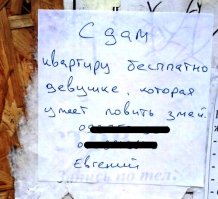 Сдам
квартиру бесплатно
девушке, которая
умеет ловить змей.
Евгений